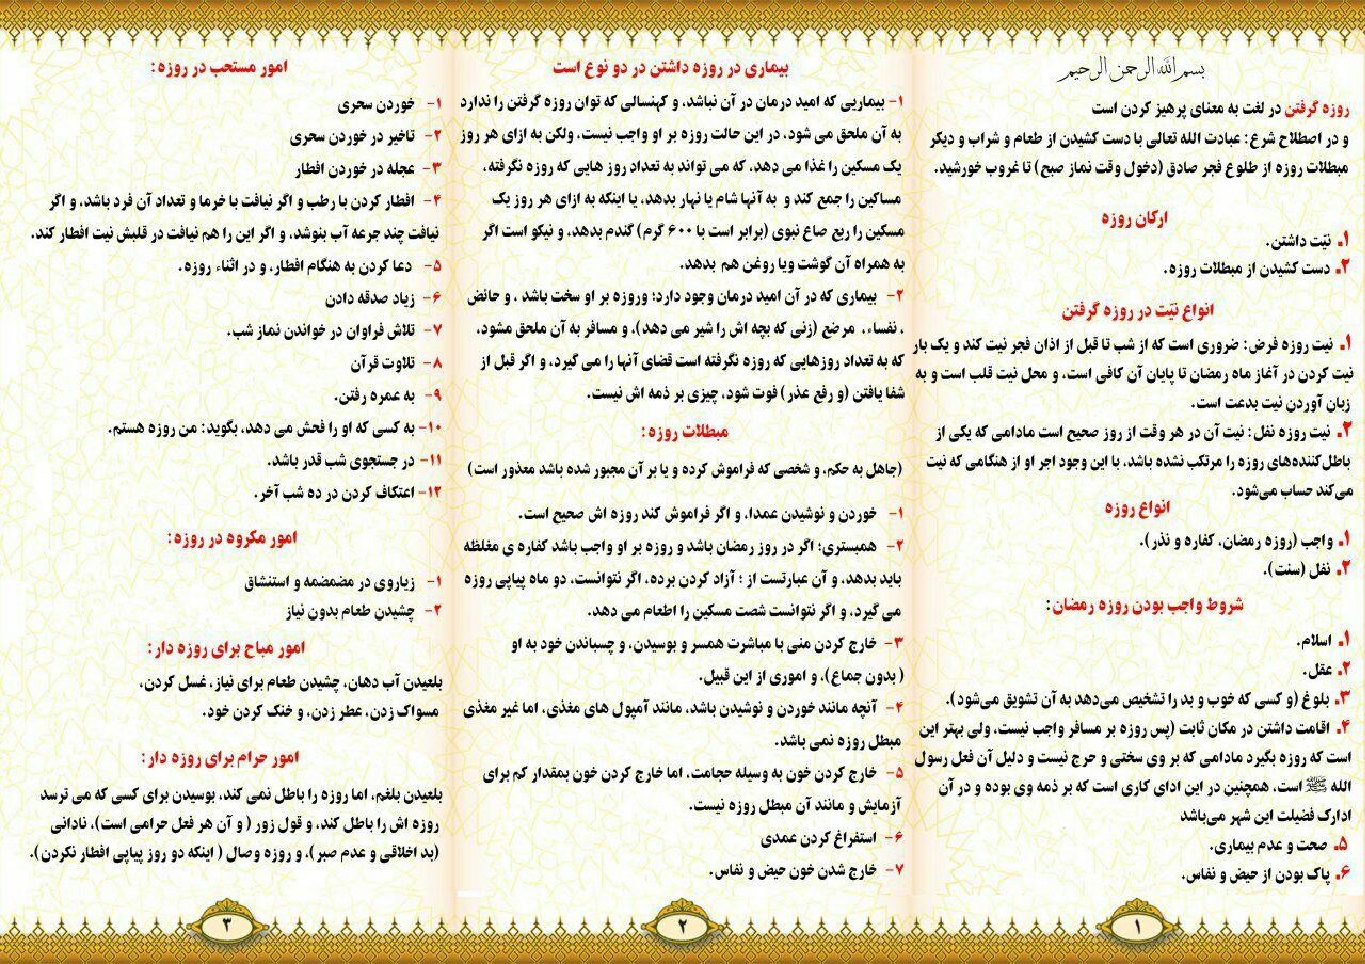 بسم الله الرحمن الرحیم
روزه گرفتن در لغت به معنای پرهیز کردن است
و در اصطلاح شرع: عبادت الله تعالی با دست کشیدن از طعام و شراب و دیگر
مبطلات روزه از طلوع فجر صادق (دخول وقت نماز صبح) تا غروب خورشید.
ارکان روزه
۱. نیّت داشتن.
۲. دست کشیدن از مبطلات روزه.
انواع نیّت در روزه گرفتن
۱. نیت روزه فرض: ضروری است که از شب تا قبل از اذان فجر نیت کند و یک بار
نیت کردن در آغاز ماه رمضان تا پایان آن کافی است، و محل نیت قلب است و به
زبان آوردنِ نیت بدعت است.
۲. نیت روزه نفل: نیت آن در هر وقت از روز صحیح است مادامی که یکی از
باطل‌کننده‌های روزه را مرتکب نشده باشد، با این وجود اجر او از هنگامی که نیت
می‌کند حساب می‌شود.
انواع روزه
۱. واجب (روزه رمضان، کفاره و نذر).
۲. نفل (سنت).
شروط واجب بودن روزه رمضان:
۱. اسلام.
۲. عقل.
۳. بلوغ (و کسی که خوب و بد را تشخیص می‌دهد به آن تشویق می‌شود).
۴. اقامت داشتن در مکان ثابت (پس روزه بر مسافر واجب نیست، ولی بهتر این
است که روزه بگیرد مادامی که بر وی سختی و حرج نیست و دلیل آن فعل رسول
الله ﷺ است، همچنین در این ادای کاری است که بر ذمه وی بوده و در آن
ادارک فضیلت این شهر می‌باشد
۵. صحت و عدم بیماری.
۶. پاک بودن از حیض و نفاس.
۱
بیماری در روزه داشتن در دو نوع است
۱- بیماریی که امید درمان در آن نباشد، و کهنسالی که توان روزه گرفتن را ندارد
به آن ملحق می شود، در این حالت روزه بر او واجب نیست، ولکن به ازای هر روز
یک مسکین را غذا می دهد، که می تواند به تعداد روز هایی که روزه نگرفته ،
مساکین را جمع کند و به آنها شام یا نهار بدهد، یا اینکه به ازای هر روز یک
مسکین را ربع صاع نبوی (برابر است با ۶۰۰ گرم) گندم بدهد، و نیکو است اگر
به همراه آن گوشت ویا روغن هم بدهد.
۲- بیماری که در آن امید درمان وجود دارد؛ وروزه بر او سخت باشد ، و حائض
، نفساء، مرضع (زنی که بچه اش را شیر می دهد)، و مسافر به آن ملحق مشود،
که به تعداد روزهایی که روزه نگرفته است قضای آنها را می گیرد، و اگر قبل از
شفا یافتن (و رفع عذر) فوت شود، چیزی بر ذمه اش نیست.
مبطلات روزه :
(جاهل به حکم، و شخصی که فراموش کرده و یا بر آن مجبور شده باشد معذور است)
۱- خوردن و نوشیدن عمدا، و اگر فراموش کند روزه اش صحیح است.
۲- همبستری؛ اگر در روز رمضان باشد و روزه بر او واجب باشد کفاره ی مغلظه
باید بدهد، و آن عبارتست از ؛ آزاد کردن برده، اگر نتوانست، دو ماه پیاپی روزه
می گیرد، و اگر نتوانست شصت مسکین را اطعام می دهد.
۳- خارج کردن منی با مباشرت همسر و بوسیدن، و چسباندن خود به او
(بدون جماع)، و اموری از این قبیل.
۴- آنچه مانند خوردن و نوشیدن باشد، مانند آمپول های مغذی، اما غیر مغذی
مبطل روزه نمی باشد.
۵- خارج کردن خون به وسیله حجامت، اما خارج کردن خون بمقدار کم برای
آزمایش و مانند آن مبطل روزه نیست.
۶- استفراغ کردن عمدی
۷- خارج شدن خون حیض و نفاس.
۲
امور مستحب در روزه:
۱- خوردن سحری
۲- تاخیر در خوردن سحری
۳- عجله در خوردن افطار
۴- افطار کردن با رطب و اگر نیافت با خرما و تعداد آن فرد باشد، و اگر
نیافت چند جرعه آب بنوشد، و اگر این را هم نیافت در قلبش نیت افطار کند.
۵- دعا کردن به هنگام افطار، و در اثناء روزه .
۶- زیاد صدقه دادن
۷- تلاش فراوان در خواندن نماز شب.
۸- تلاوت قرآن
۹- به عمره رفتن.
۱۰- به کسی که او را فحش می دهد، بگوید: من روزه هستم.
۱۱- در جستجوی شب قدر باشد.
۱۲- اعتکاف کردن در ده شب آخر.
امور مکروه در روزه:
۱- زیاروی در مضمضمه و استنشاق
۲- چشیدن طعام بدون نیاز
امور مباح برای روزه دار:
بلعیدن آب دهان، چشیدن طعام برای نیاز، غسل کردن،
مسواک زدن، عطر زدن، و خنک کردن خود.
امور حرام برای روزه دار:
بلعیدن بلغم، اما روزه را باطل نمی کند، بوسیدن برای کسی که می ترسد
روزه اش را باطل کند، و قول زور ( و آن هر فعل حرامی است)، نادانی
(بد اخلاقی و عدم صبر)، و روزه وصال ( اینکه دو روز پیاپی افطار نکردن).
۳